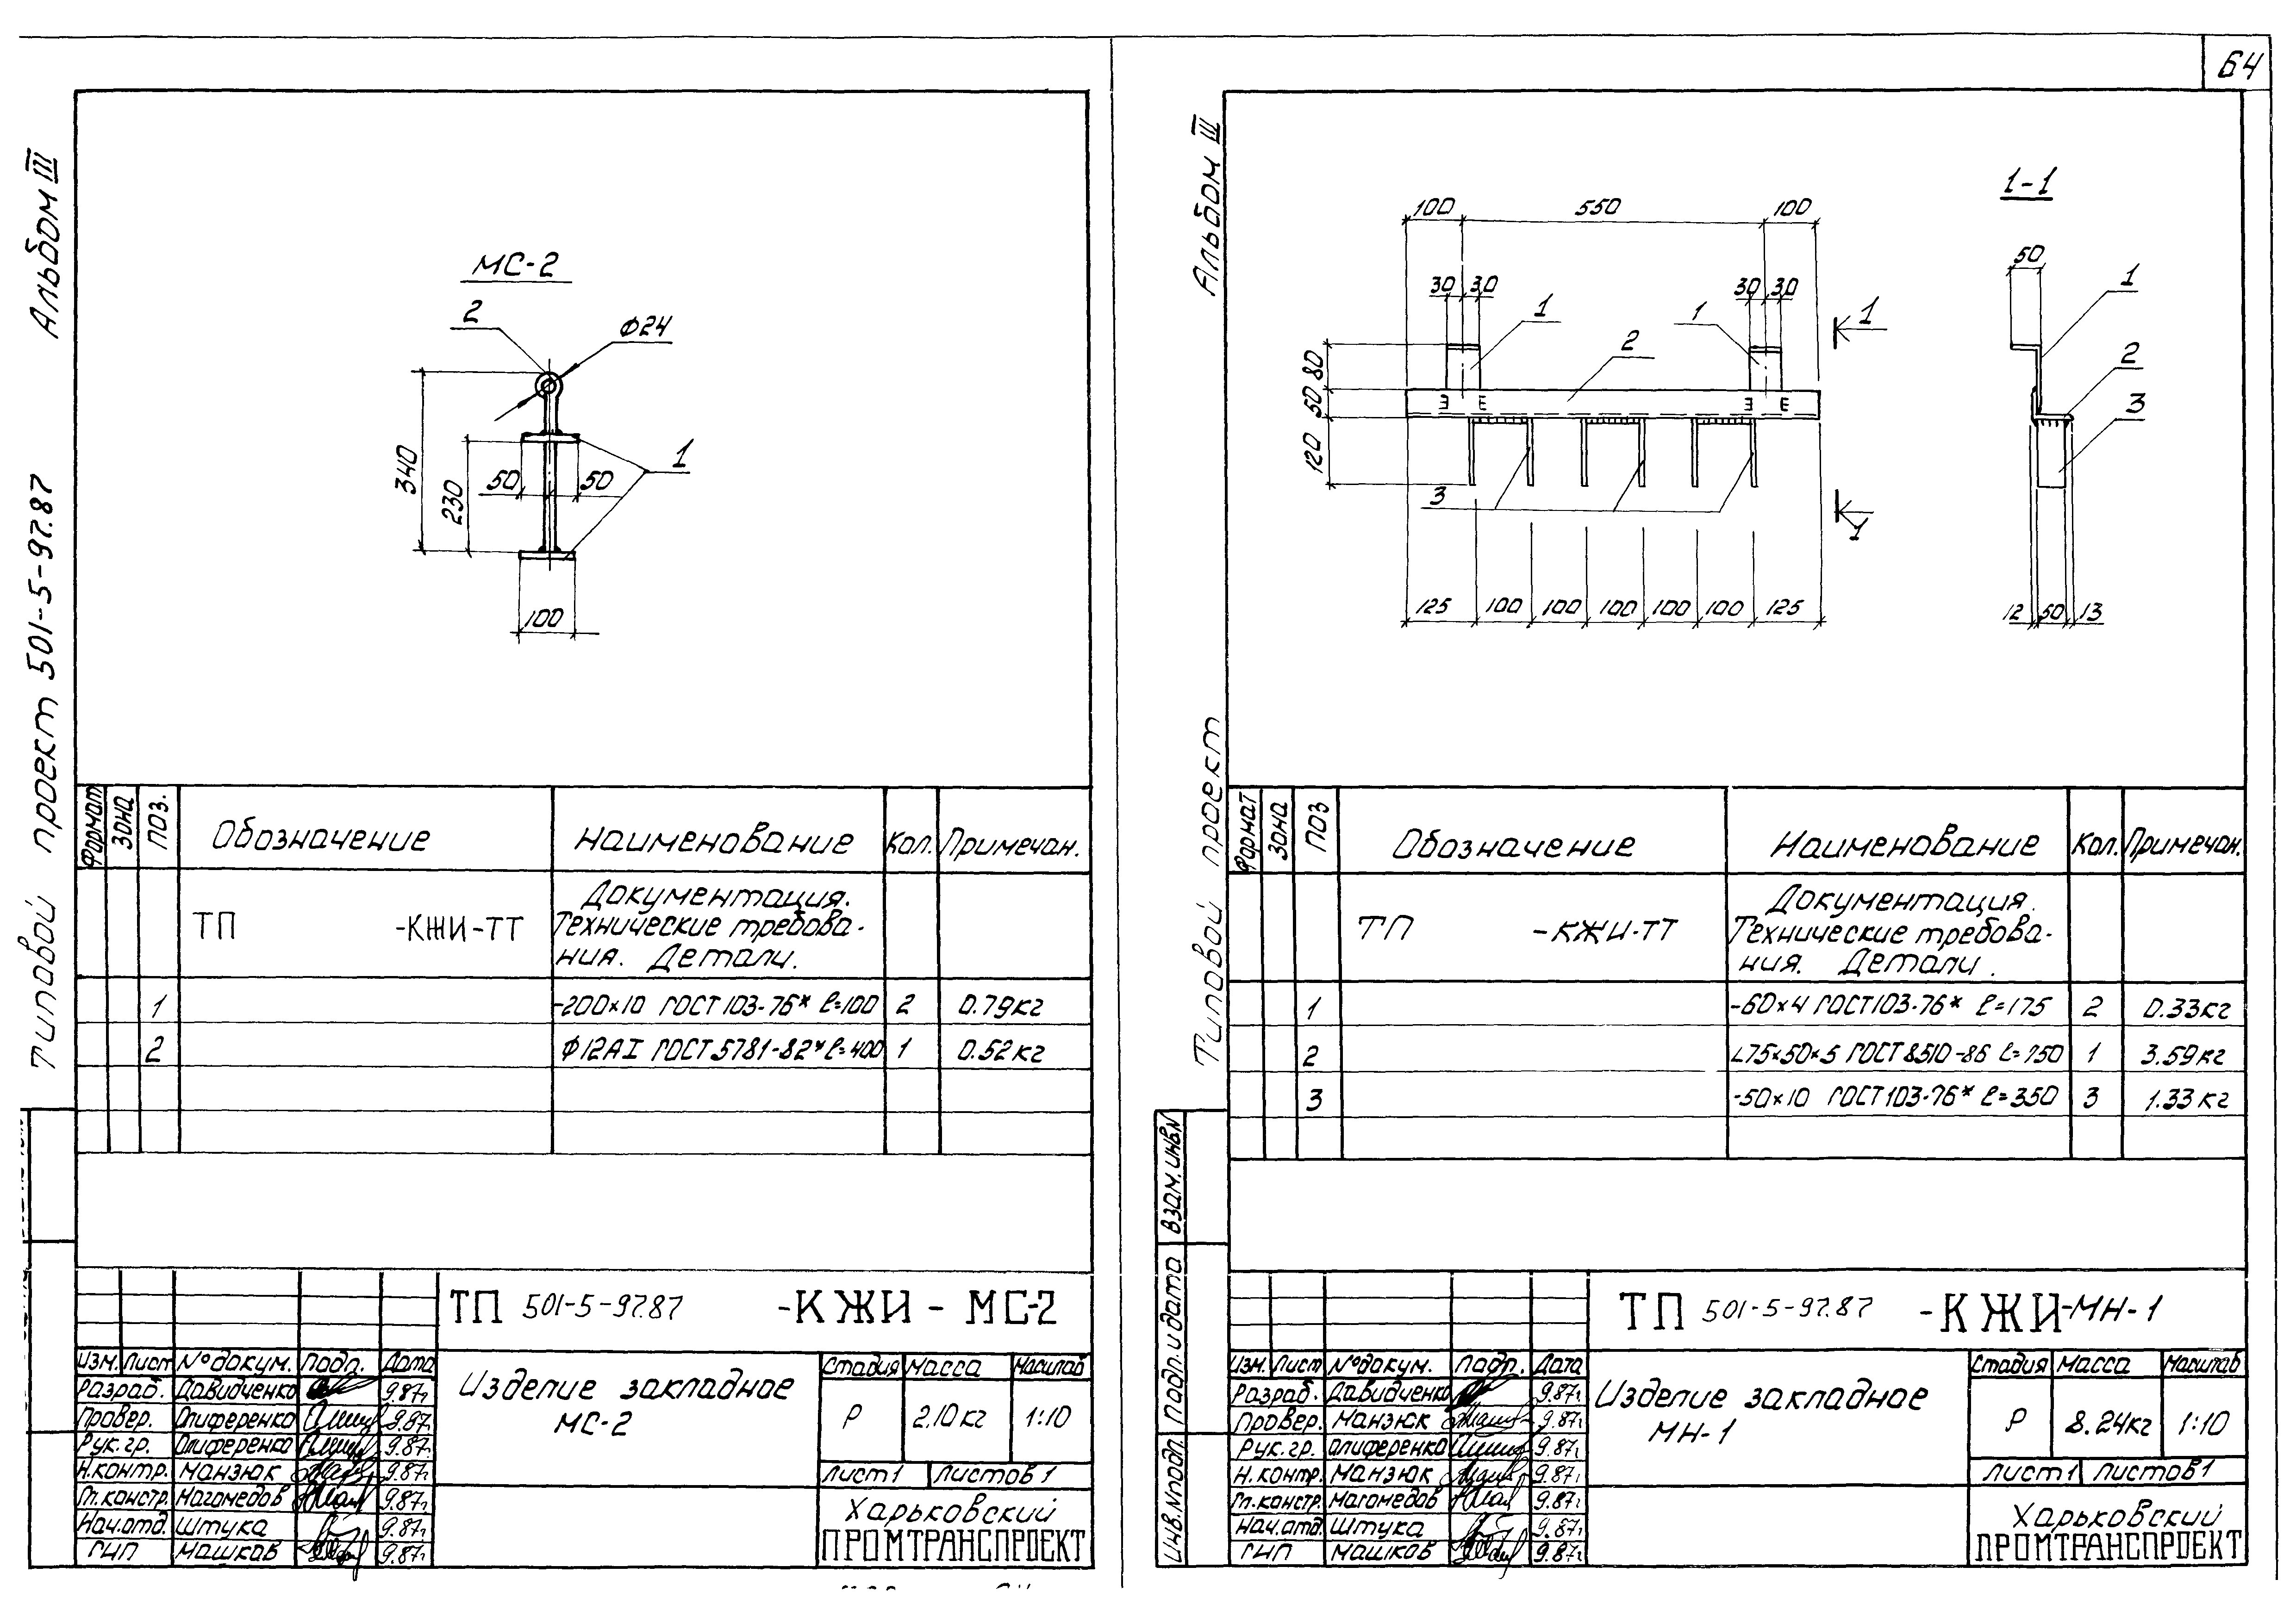 64
Альбом III
Типовой проект 501-5-97.87
МС-2
2
Ф24
340
230
50
50
1
100
Формат
Зона
Поз.
Обозначение
Наименование
Кол.
Примечан.
Документация.
ТП -КЖИ-ТТ
Технические требова-
ния. Детали.
1 -200×10 ГОСТ 103-76* ℓ=100 2 0.79кг
2 Ф12АI ГОСТ 5781-82* ℓ=400 1 0.52кг
ТП 501-5-97.87 -КЖИ - МС-2
Изм. Лист № докум. Подп. Дата
Разраб. Давидченко 9.87г
Провер. Олиференко 9.87г.
Рук. гр. Олиференко 9.87г.
Н.контр. Манзюк 9.87г
Гл.констр. Магомедов 9.87г
Нач.отд. Штука 9.87г
ГИП Машков 9.87г
Изделие закладное
МС-2
Стадия Масса Масштаб
Р 2.10кг 1:10
Лист 1 Листов 1
Харьковский
ПРОМТРАНСПРОЕКТ
Альбом III
Типовой проект
1-1
100 550 100
30 30
30 30
1
1
2
1
80
50
120
3
1
125 100 100 100 100 100 125
50
1
2
3
12 50 13
Формат
Зона
Поз
Обозначение
Наименование
Кол.
Примечан.
Документация.
ТП -КЖИ-ТТ
Технические требова-
ния. Детали.
1 -60×4 ГОСТ 103-76* ℓ=175 2 0.33кг
2 ∠75×50×5 ГОСТ 8510-86 ℓ=750 1 3.59кг
3 -50×10 ГОСТ 103-76* ℓ=350 3 1.33кг
Взам.инв.N
Подп. и дата
Инв.N подл.
ТП 501-5-97.87 -КЖИ-МН-1
Изм. Лист № докум. Подп. Дата
Разраб. Давидченко 9.87г
Провер. Манзюк 9.87г
Рук. гр. Олиференко 9.87г
Н.контр. Манзюк 9.87г
Гл.констр. Магомедов 9.87г
Нач.отд. Штука 9.87г
ГИП Машков 9.87г
Изделие закладное
МН-1
Стадия Масса Масштаб
Р 8.24кг 1:10
Лист 1 Листов 1
Харьковский
ПРОМТРАНСПРОЕКТ